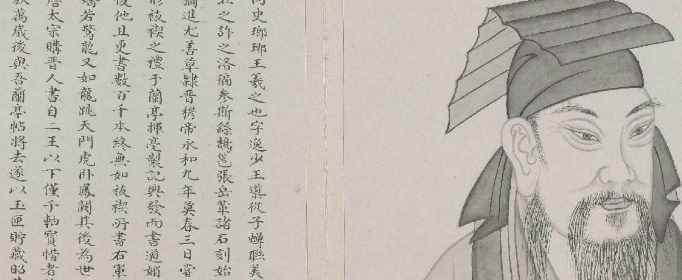 史瑯瑯王羲之也字逸少王導從子蟬聯美
之許之洛陽參斯餘鵠邕張岳華諸石刻始
進尤善草隸晉穆帝永和九年莫春三日嘗
祓禊之禮于蘭亭揮毫製記興發而書遒媚
後他日更書數百千本終無如祓禊所書右軍
翥若驚龍又如龍跳天門虎臥鳳闕其後為世
唐太宗購晉人書自二王以下僅千軸寶惜者
秋萬歲後與吾蘭亭帖將去遂以玉匣貯藏昭